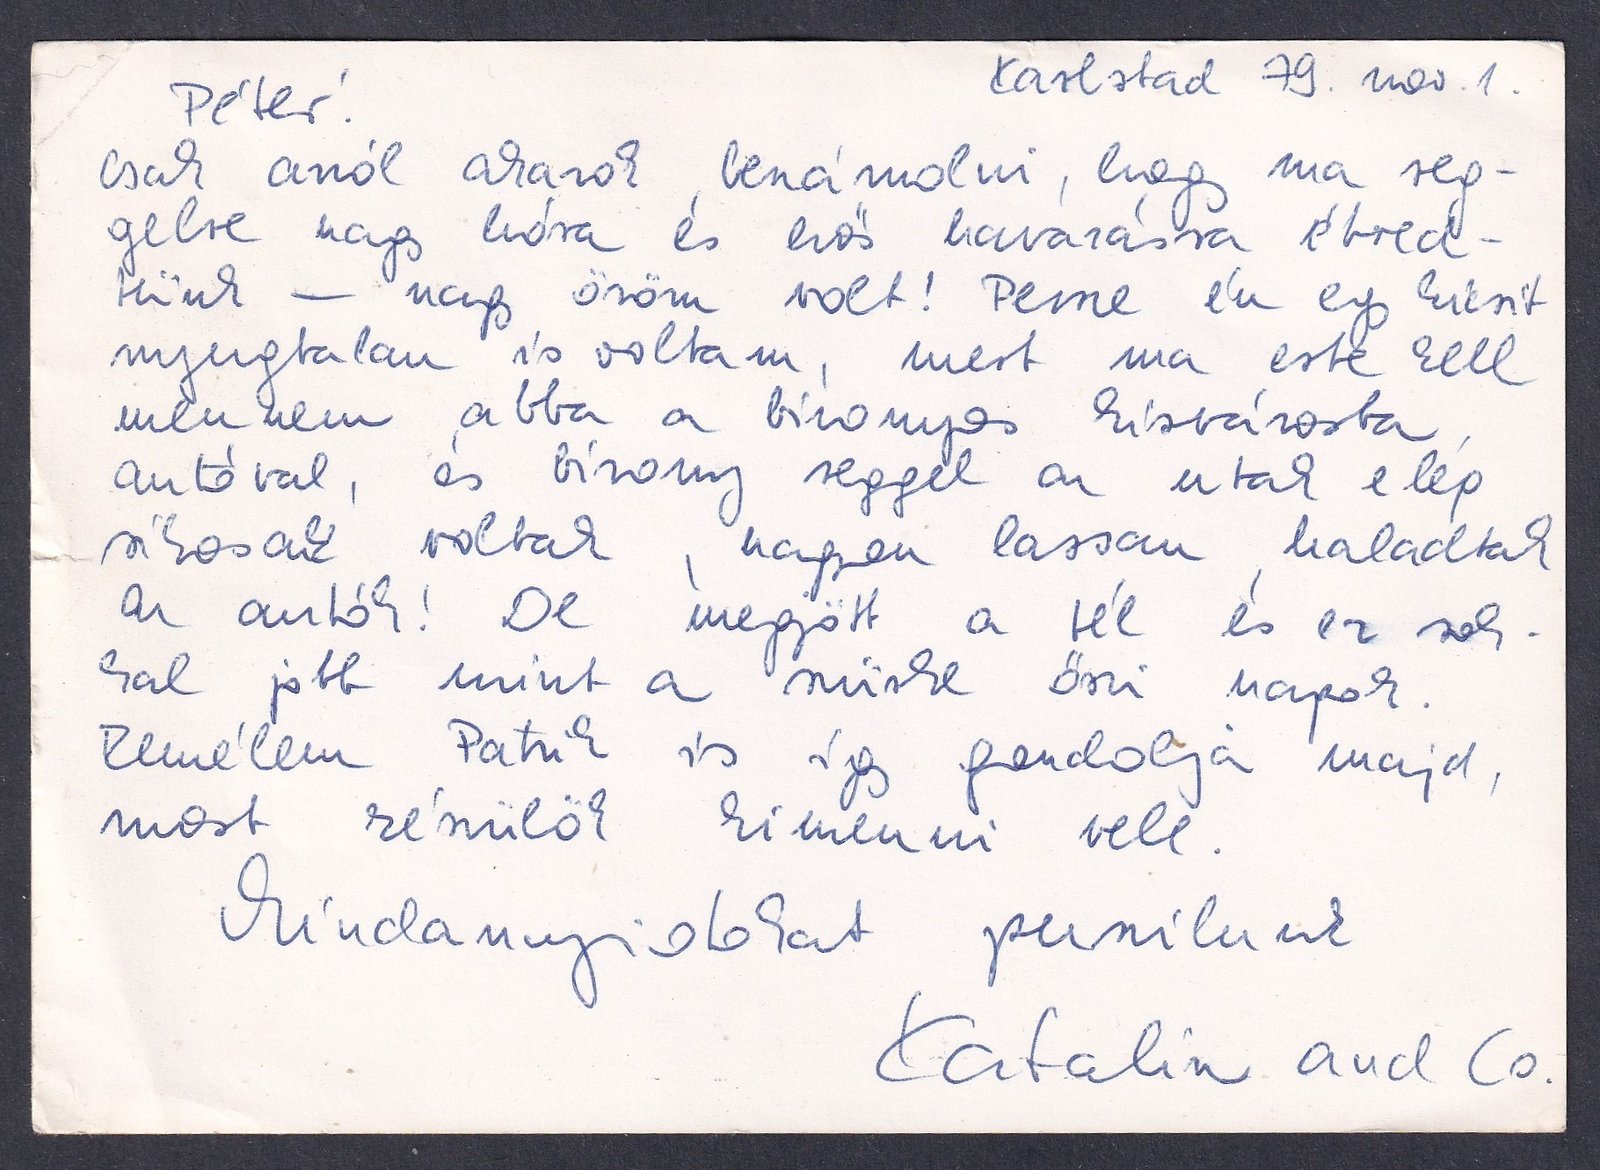 Karlstad 79. nov. 1.
Péter!
Csak arról akarok beszámolni, hogy ma reg-
gelre nagy hóra és erős havazásra ébred-
tünk — nagy öröm volt! Persze én egy kicsit
nyugtalan is voltam, mert ma este kell
mennem abba a bizonyos kisvárosba,
autóval, és bizony reggel az utak elég
síkosak voltak, nagyon lassan haladtak
az autók! De megjött a tél és ez sok-
kal jobb mint a szürke őszi napok.
Remélem Patrik is így gondolja majd,
most készülök kimenni vele.
Mindannyiotokat puszilunk
Katalin and Co.